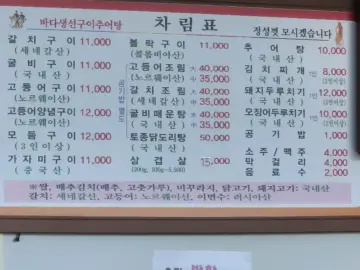 바다생선구이추어탕
차 림 표
정성껏 모시겠습니다
갈 치 구 이 11,000
(세네갈산)
굴 비 구 이 11,000
(국 내 산)
고 등 어 구 이 11,000
(노르웨이산)
고등어양념구이 12,000
(노르웨이산)
모 듬 구 이 12,000
(3인이상)
가 자 미 구 이 11,000
(중 국 산)
공기밥 별도
볼 락 구 이 11,000
고 등 어 조 림 大 40,000
(노르웨이산) 中 35,000
갈 치 조 림 大 40,000
(세네갈산) 中 35,000
굴비매운탕 大 40,000
(국 내 산) 中 35,000
토종닭도리탕 50,000
(국 내 산)
삼 겹 살 15,000
추 어 탕 10,000
(국 내 산)
김 치 찌 개 8,000
(국 내 산)
돼지두루치기 12,000
(국 내 산)
오징어두루치기 12,000
(국 내 산)
공 기 밥 1,000
소 주 / 맥 주 4,000
막 걸 리 4,000
음 료 수 2,000
※쌀, 배추김치(배추, 고춧가루), 미꾸라지, 닭고기, 돼지고기: 국내산
갈치: 세네갈산, 고등어: 노르웨이산, 이면수: 러시아산